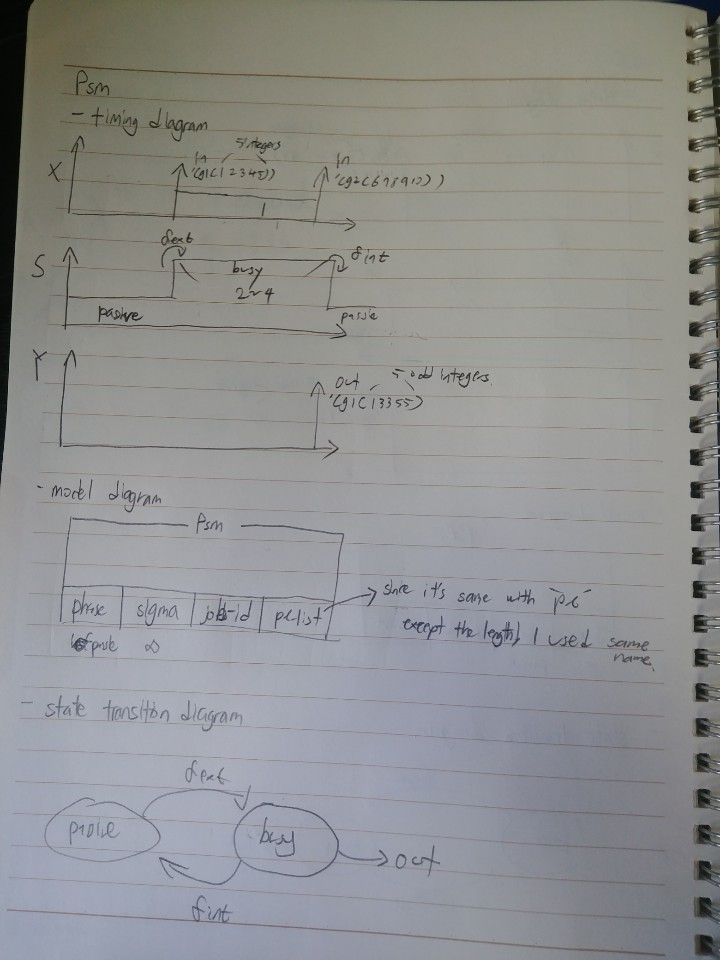 Psm
- timing diagram
5 integers
In In
X '(g1(12345)) '(g2(678910))
1
δext δint
S busy
2~4
passive passive
Y out 5 odd integers
'(g1(13355)
- model diagram
Psm
phase sigma job-id pclist → since it's same with "pc"
passive ∞ except the length, I used same
name.
- state transition diagram
δext
passive busy → out
δint